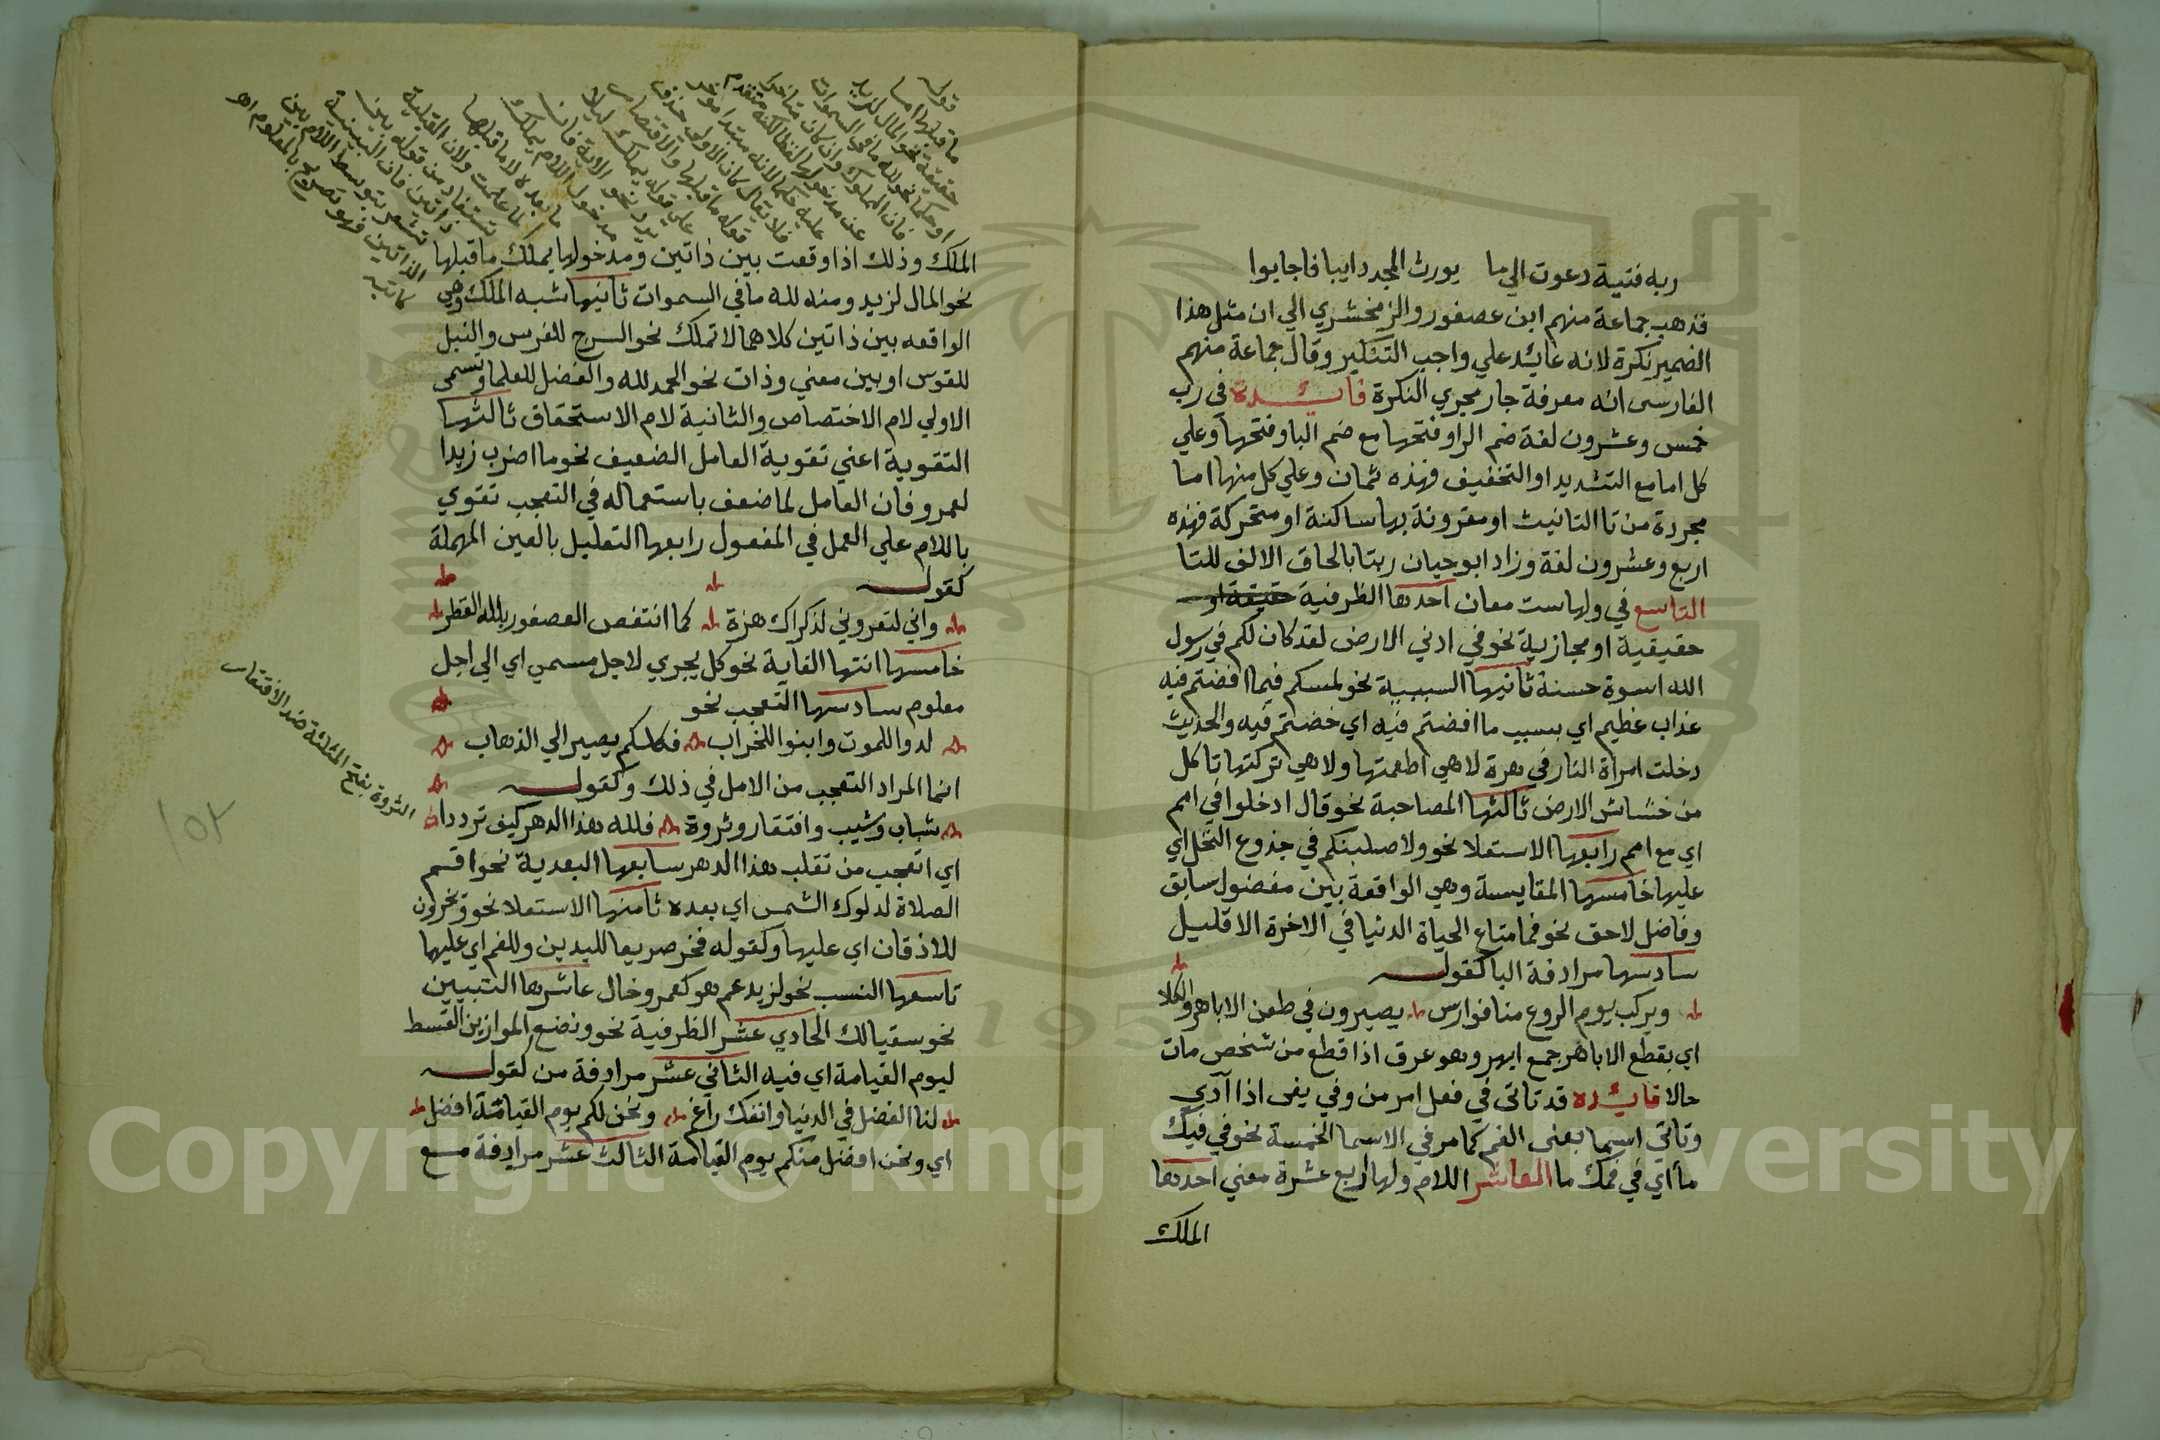 ربه فتية دعوت الي ما يورث المجد دايبا فاجابوا
فذهب جماعة منهم ابن عصفور والزمخشري الي ان مثل هذا
الضمير نكرة لانه عايد علي واجب التنكير وقال جماعة منهم
الفارسى انه معرفة جار مجري النكرة فايدة في رب
خمس وعشرون لغة ضم الرا وفتحها مع ضم البا وفتحها وعلي
كل اما مع التشديد او التخفيف فهذه ثمان وعلي كل منها اما
مجردة من تا التانيث او مقرونة بها ساكنة او متحركة فهذه
اربع وعشرون لغة وزاد ابو حيان ربتا بالحاق الالف للتا
التاسع في ولها ست معان احدها الظرفية حقيقة او
حقيقية او مجازية نحو في ادني الارض لقد كان لكم في رسول
الله اسوة حسنة ثانيها السببية نحو لمسكم فيما افضتم فيه
عذاب عظيم اي بسبب ما افضتم فيه اي خضتم فيه والحديث
دخلت امراة النار في هرة لا هي اطعمتها ولا هي تركتها تاكل
من خشاش الارض ثالثها المصاحبة نحو قال ادخلوا في امم
اي مع امم رابعها الاستعلا نحو ولاصلبنكم في جذوع النخل اي
عليها خامسها المقايسة وهي الواقعة بين مفضول سابق
وفاضل لاحق نحو فما متاع الحياة الدنيا في الاخرة الا قليل
سادسها مرادفة البا كقوله
ويركب يوم الروع منا فوارس يصيرون في طعن الاباهر والكلا
اي بقطع الاباهر جمع ابهر وهو عرق اذا قطع من شخص مات
حالا فايده قد تاتى في فعل امر من وفي يفى اذا آدي
وتاتي اسما بمعنى الفم كما مر في الاسما الخمسة نحو في فيك
ما اي في فمك ما العاشر اللام ولها اربع عشرة معني احدها
الملك
قوله
ما قبلها اما
حقيقة نحو المال لزيد
او حكما نحو لله ما في السموات
فان المملوك وان كان متاخرا
عن مدخولها لفظا لكنه متقدم
عليه حكما لانه مبتدا موخر
فلا يقال كان الاولي حذف
قوله ما قبلها والاقتصار
علي قوله يملك ليلا
يرد نحو الاية فان
مدخول اللام يملك
ما بعده لا ما قبلها
لما علمت ولان القبلية
تستفاد من قوله بين
ذاتين فان البينية
تشعر بتوسط اللام بين
الذاتين فهو تصريح بالمعلوم اهـ
كاتبه
الملك وذلك اذا وقعت بين ذاتين ومدخولها يملك ما قبلها
نحو المال لزيد ومنه لله ما في السموات ثانيها شبه الملك وهي
الواقعه بين ذاتين كلاهما لا تملك نحو السرج للفرس والنبل
للقوس او بين معني وذات نحو الحمد لله والفضل للعلما وتسمى
الاولي لام الاختصاص والثانية لام الاستحقاق ثالثها
التقوية اعني تقوية العامل الضعيف نحو ما اضرب زيدا
لعمرو فان العامل لما ضعف باستعماله في التعجب تقوي
باللام علي العمل في المفعول رابعها التعليل بالعين المهملة
كقوله
واني لتعروني لذكراك هزة كما انتفض العصفور بلله القطر
خامسها انتها الغاية نحو كل يجري لاجل مسمي اي الي اجل
معلوم سادسها التعجب نحو
لدوا للموت وابنوا للخراب فكلكم يصير الي الذهاب
انما المراد التعجب من الامل في ذلك وكقوله
شباب وشيب وافتقار وثروة فلله هذا الدهر كيف ترددا
اي اتعجب من تقلب هذا الدهر سابعها البعدية نحو اقم
الصلاة لدلوك الشمس اي بعده ثامنها الاستعلا نحو وتخرون
للاذقان اي عليها وكقوله فخر صريعا لليدين وللفم اي عليها
تاسعها النسب نحو لزيد عم هو كعمرو خال عاشرها التبيين
نحو سقيا لك الحادي عشر الظرفية نحو ونضع الموازين القسط
ليوم القيامة اي فيه الثاني عشر مرادفة من كقوله
لنا الفضل في الدنيا وانفك راغم ونحن لكم يوم القيامة افضل
اي ونحن افضل منكم يوم القيامة الثالث عشر مرادفة مع
الثروة بفتح المثلثة ضد الافتقار
١٥٢
Copyright © King Saud University